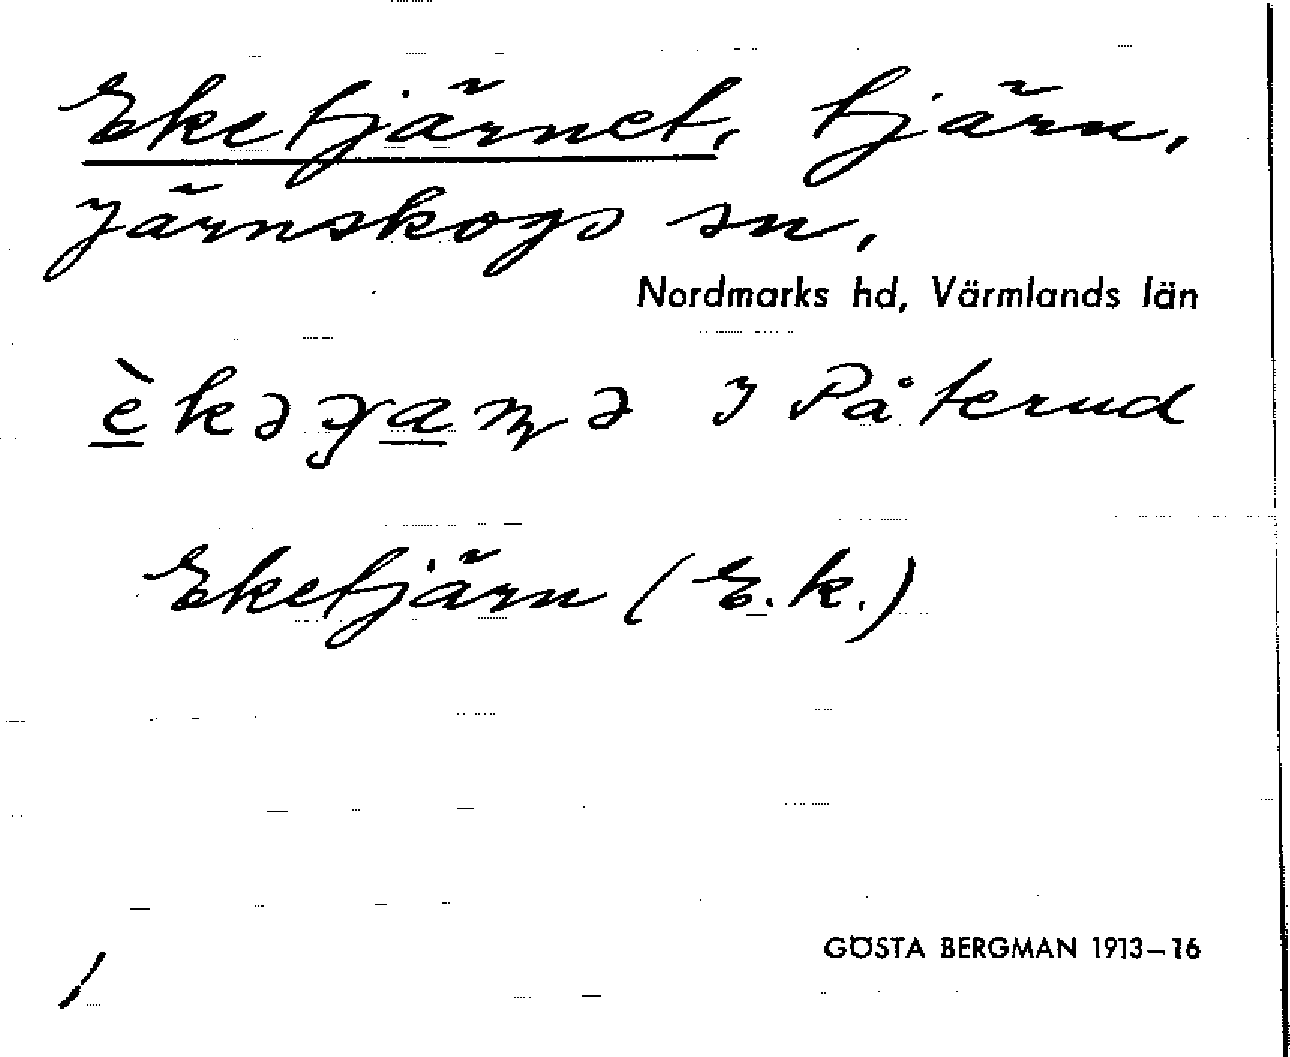 Eketjärnet, tjärn,
Järnskogs sn,
Nordmarks hd, Värmlands län
I Påterud
Eketjärn (E.k.)
GÖSTA BERGMAN 1913–16
/